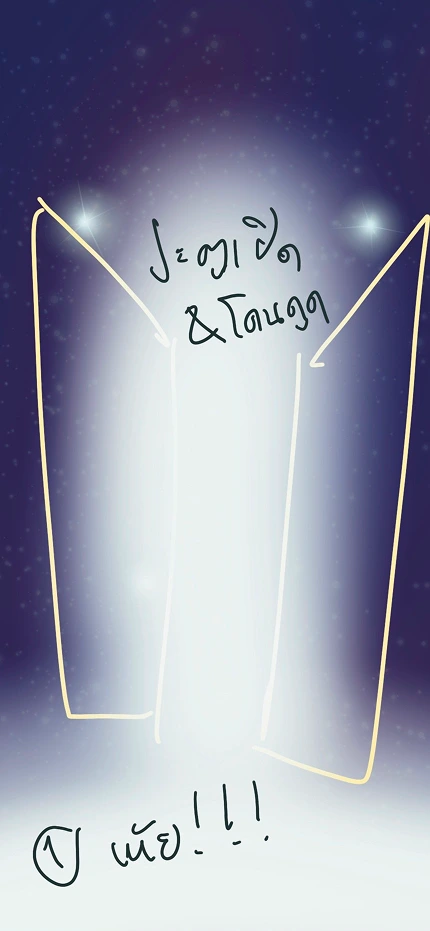 ประตูเปิด
& โดนดูด
① เห้ย!!!